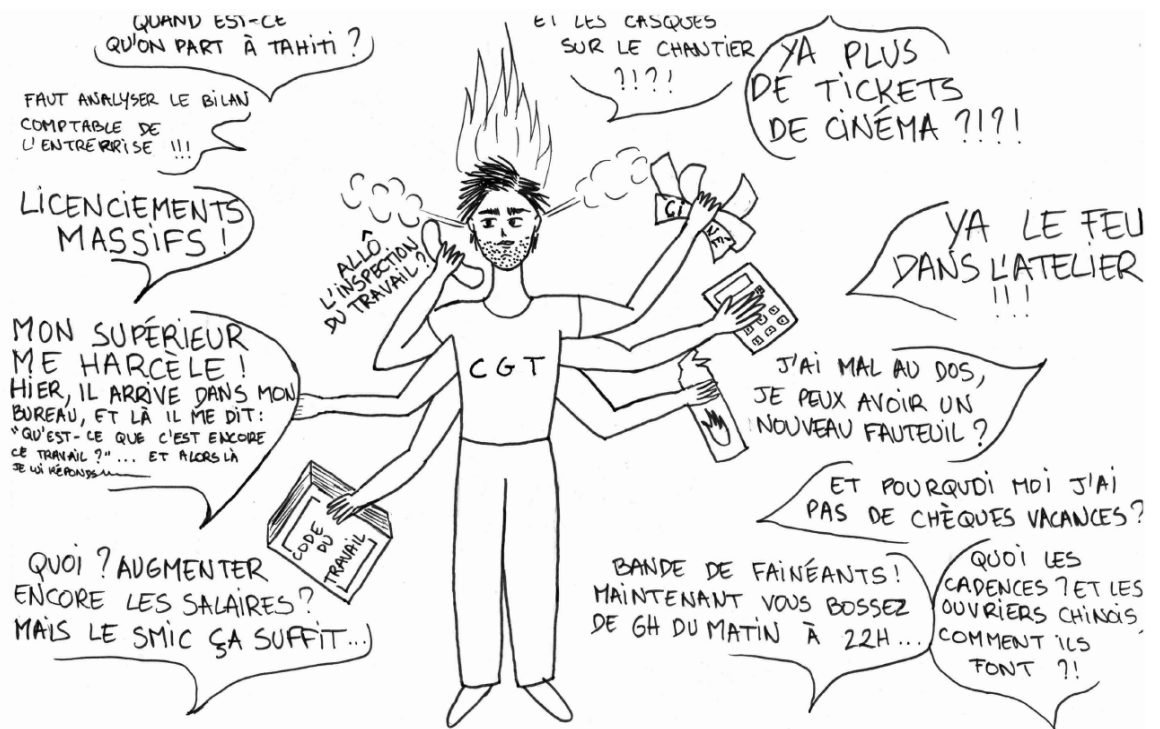 QUAND EST-CE
QU'ON PART À TAHITI ?
FAUT ANALYSER LE BILAN
COMPTABLE DE
L'ENTREPRISE !!!
LICENCIEMENTS
MASSIFS !
MON SUPÉRIEUR
ME HARCÈLE !
HIER, IL ARRIVE DANS MON
BUREAU, ET LÀ IL ME DIT :
"QU'EST-CE QUE C'EST ENCORE
CE TRAVAIL ?"... ET ALORS LÀ
JE LUI RÉPONDS
QUOI ? AUGMENTER
ENCORE LES SALAIRES ?
MAIS LE SMIC ÇA SUFFIT...
ALLÔ
L'INSPECTION
DU TRAVAIL ?
CGT
CODE
DU
TRAVAIL
CI
NÉ
ET LES CASQUES
SUR LE CHANTIER
?!?!
YA PLUS
DE TICKETS
DE CINÉMA ?!?!
YA LE FEU
DANS L'ATELIER
!!!
J'AI MAL AU DOS,
JE PEUX AVOIR UN
NOUVEAU FAUTEUIL ?
ET POURQUOI MOI J'AI
PAS DE CHÈQUES VACANCES ?
BANDE DE FAINÉANTS !
MAINTENANT VOUS BOSSEZ
DE 6H DU MATIN À 22H...
QUOI LES
CADENCES ? ET LES
OUVRIERS CHINOIS
COMMENT ILS
FONT ?!